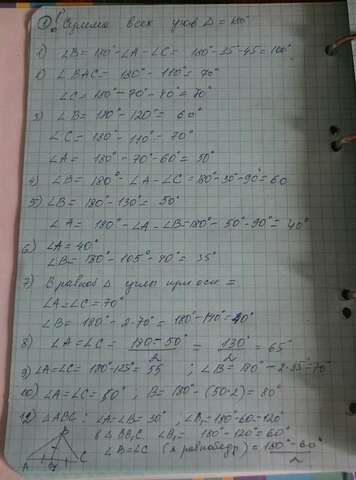 ① Сумма всех углов △ = 180°
1) ∠B = 180° - ∠A - ∠C = 180° - 35 - 45 = 100°
∠BAC = 180° - 110° = 70°
∠C = 180° - 70° - 40° = 70°
3) ∠B = 180° - 120° = 60°
∠C = 180° - 110° = 70°
∠A = 180° - 70° - 60° = 50°
4) ∠B = 180° - ∠A - ∠C = 180° - 30° - 90° = 60
5) ∠B = 180° - 130° = 50°
∠A = 180° - ∠A - ∠B = 180° - 50° - 90° = 40°
6) ∠A = 40°
∠B = 180° - 105° - 40° = 35°
7) В равноб △ углы при осн =
∠A = ∠C = 70°
∠B = 180° - 2·70° = 180° - 140° = 40°
8) ∠A = ∠C = 180° - 50° / 2 = 130° / 2 = 65°
9) ∠A = ∠C = 180° - 125° = 55 ; ∠B = 180° - 2·55° = 70°
10) ∠A = ∠C = 50° ; B = 180° - (50·2) = 80°
12) △ABC : ∠A = ∠B = 30° , ∠B₁ = 180° - 60 = 120°
В △ BB₁C ∠B₁ = 180° - 120° = 60°
∠B = ∠C (в равнобедр) = 180° - 60° / 2
A B₁ C B